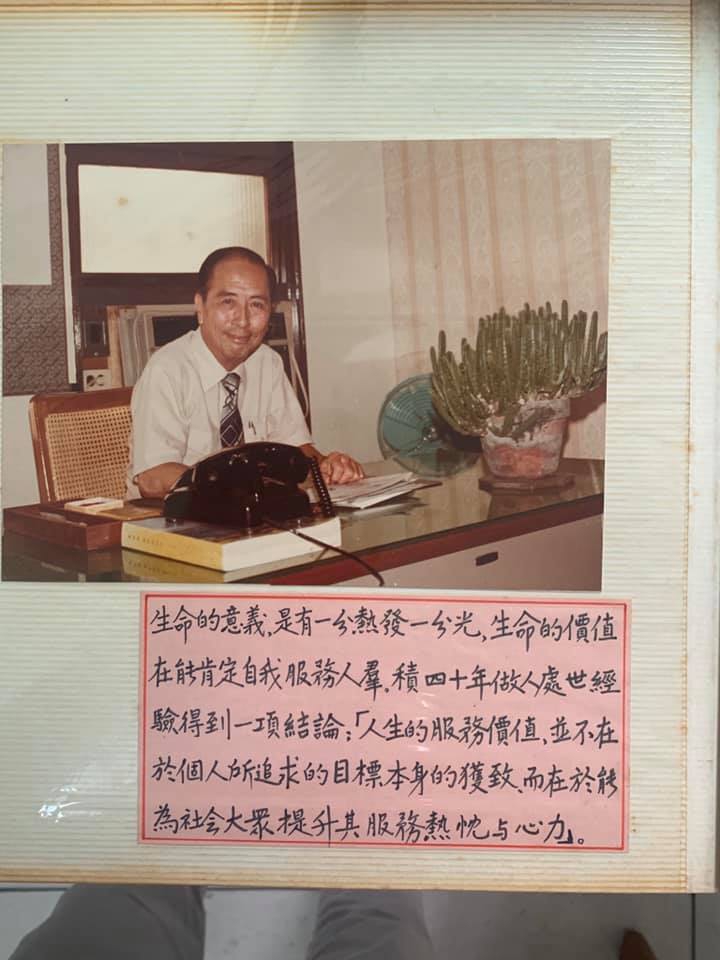 生命的意義,是有一分熱發一分光,生命的價值
在能肯定自我服務人羣.積四十年做人處世經
驗得到一項結論:「人生的服務價值,並不在
於個人所追求的目標本身的獲致,而在於能
為社会大眾提升其服務熱忱与心力」。